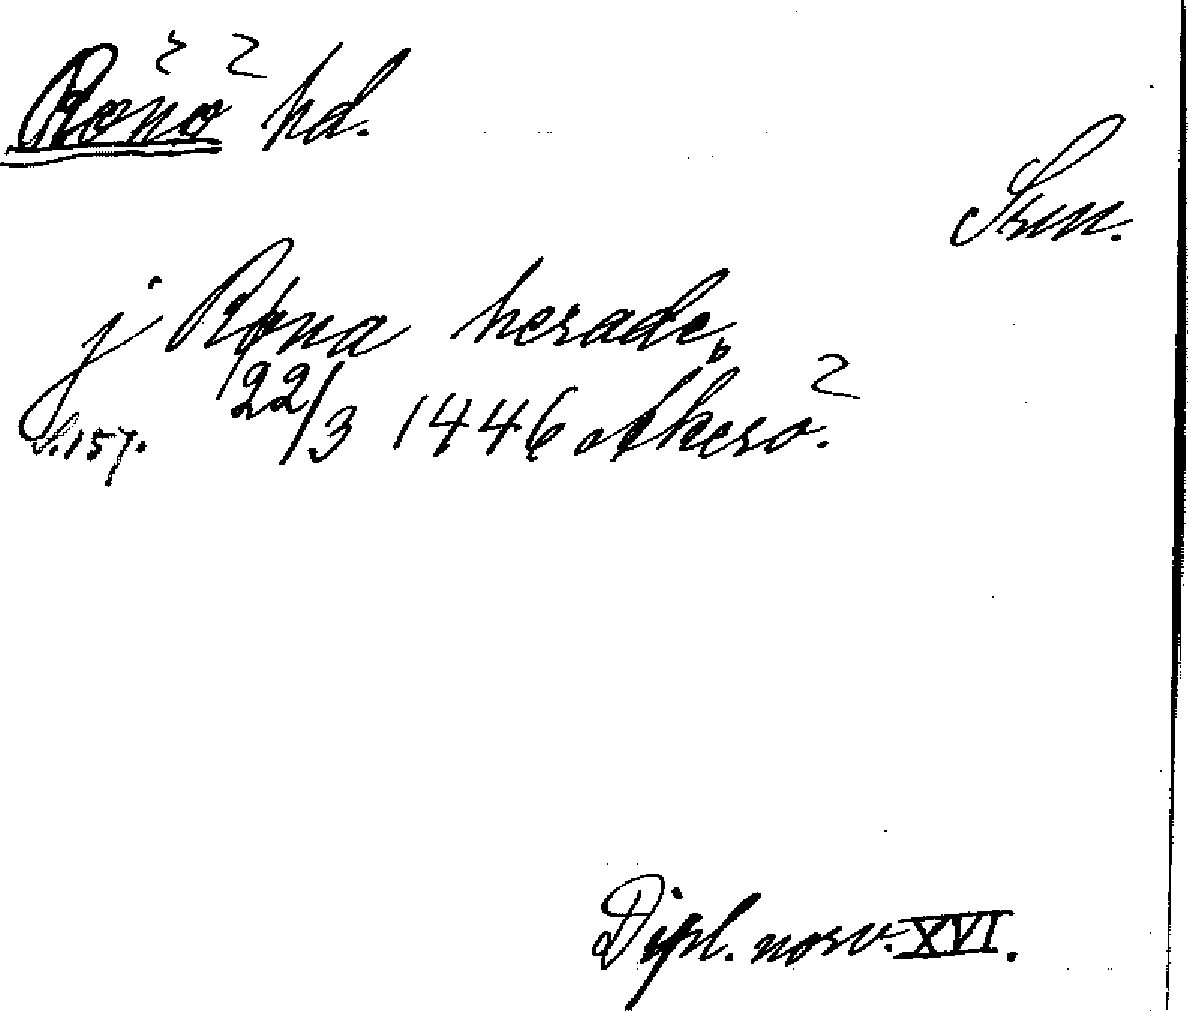 Rönö hd.
Srm.
j Røna herade,
S. 157. 22/3 1446 Åkerö.
Dipl. norv. XVI.